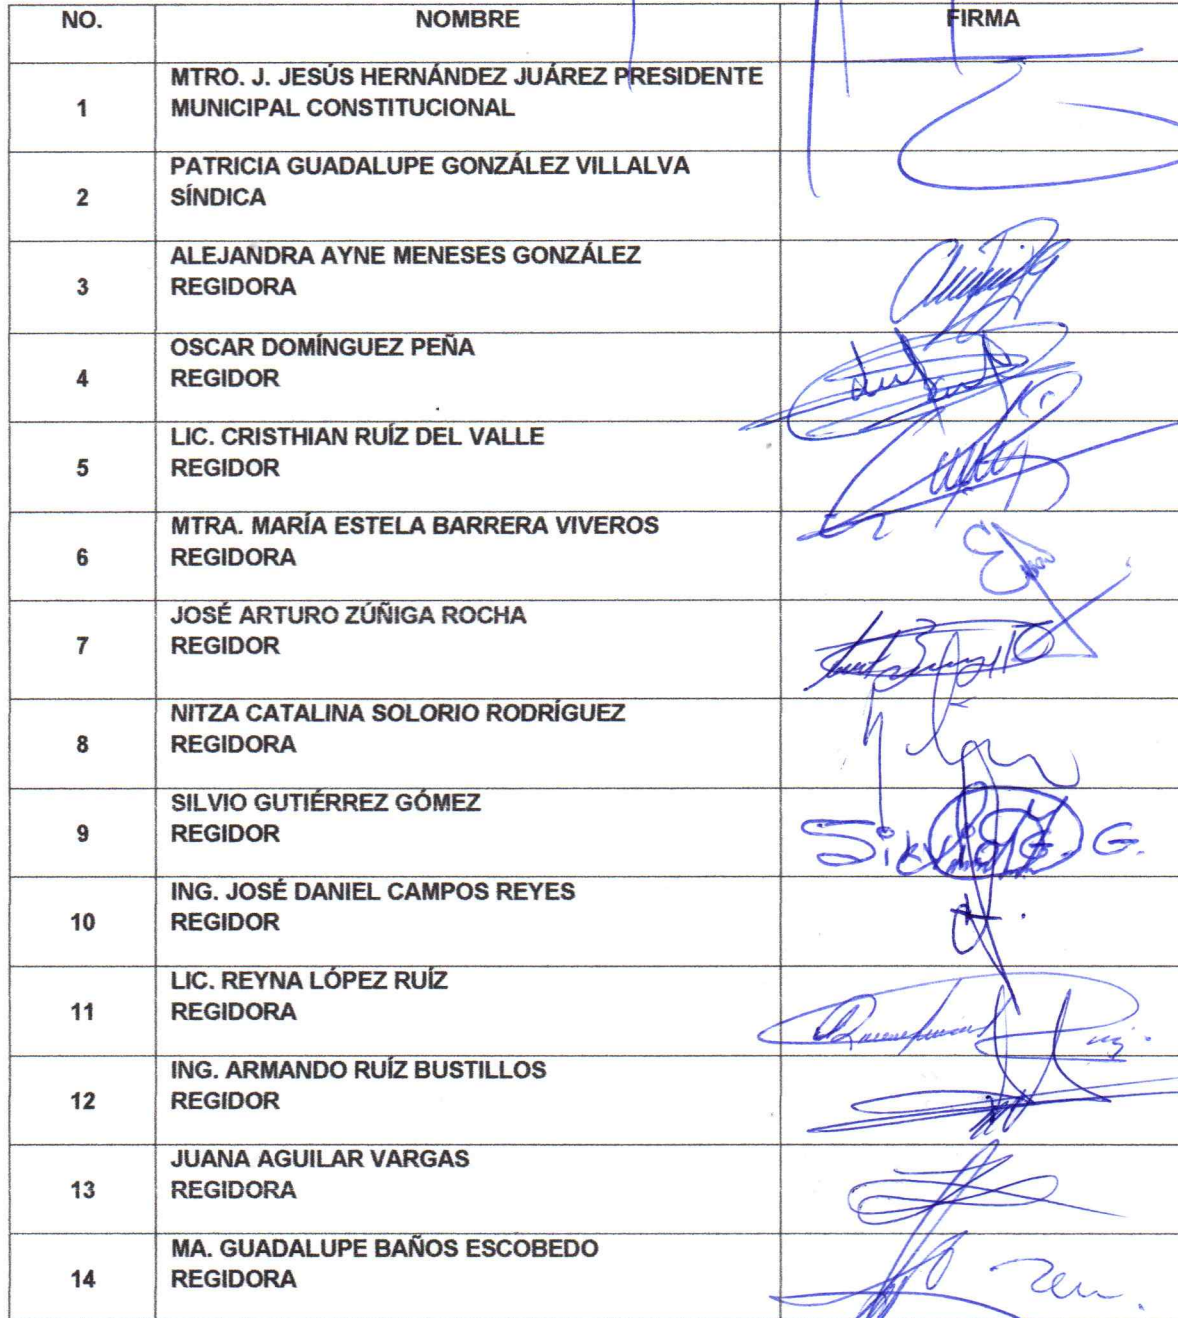 NO. NOMBRE FIRMA
1 MTRO. J. JESÚS HERNÁNDEZ JUÁREZ PRESIDENTE
MUNICIPAL CONSTITUCIONAL
2 PATRICIA GUADALUPE GONZÁLEZ VILLALVA
SÍNDICA
3 ALEJANDRA AYNE MENESES GONZÁLEZ
REGIDORA
4 OSCAR DOMÍNGUEZ PEÑA
REGIDOR
5 LIC. CRISTHIAN RUÍZ DEL VALLE
REGIDOR
6 MTRA. MARÍA ESTELA BARRERA VIVEROS
REGIDORA
7 JOSÉ ARTURO ZÚÑIGA ROCHA
REGIDOR
8 NITZA CATALINA SOLORIO RODRÍGUEZ
REGIDORA
9 SILVIO GUTIÉRREZ GÓMEZ
REGIDOR
10 ING. JOSÉ DANIEL CAMPOS REYES
REGIDOR
11 LIC. REYNA LÓPEZ RUÍZ
REGIDORA
12 ING. ARMANDO RUÍZ BUSTILLOS
REGIDOR
13 JUANA AGUILAR VARGAS
REGIDORA
14 MA. GUADALUPE BAÑOS ESCOBEDO
REGIDORA